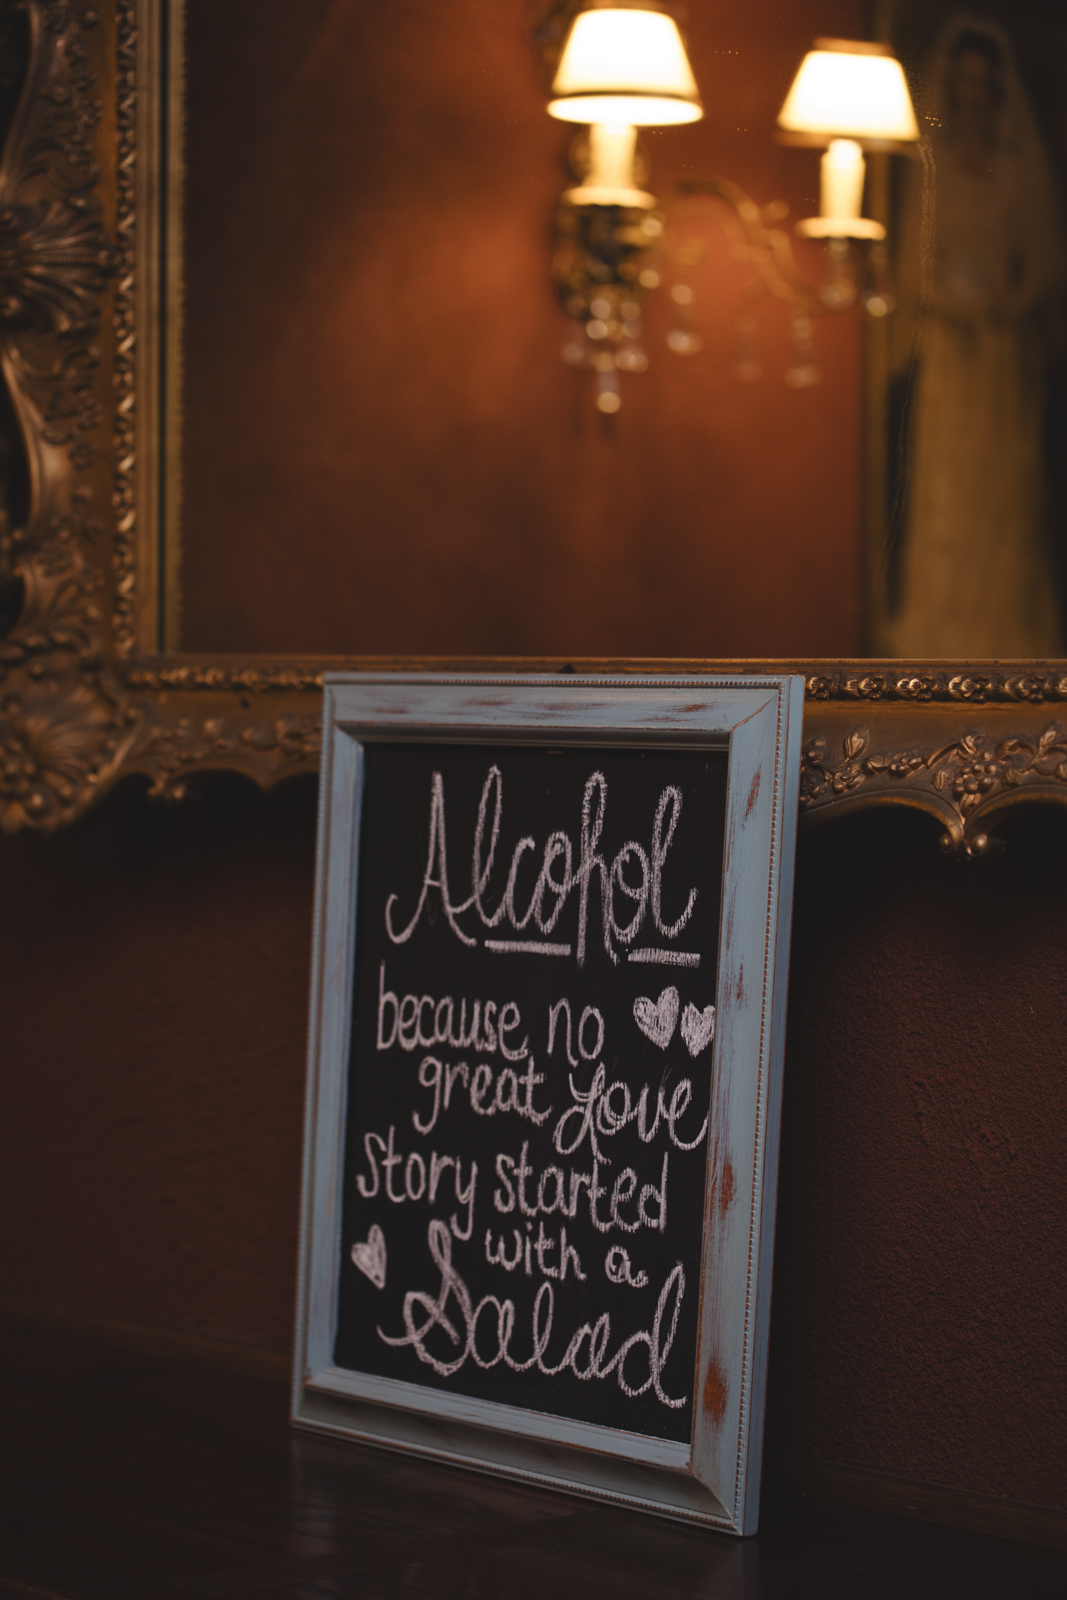 Alcohol
because no
great Love
Story started
with a
Salad